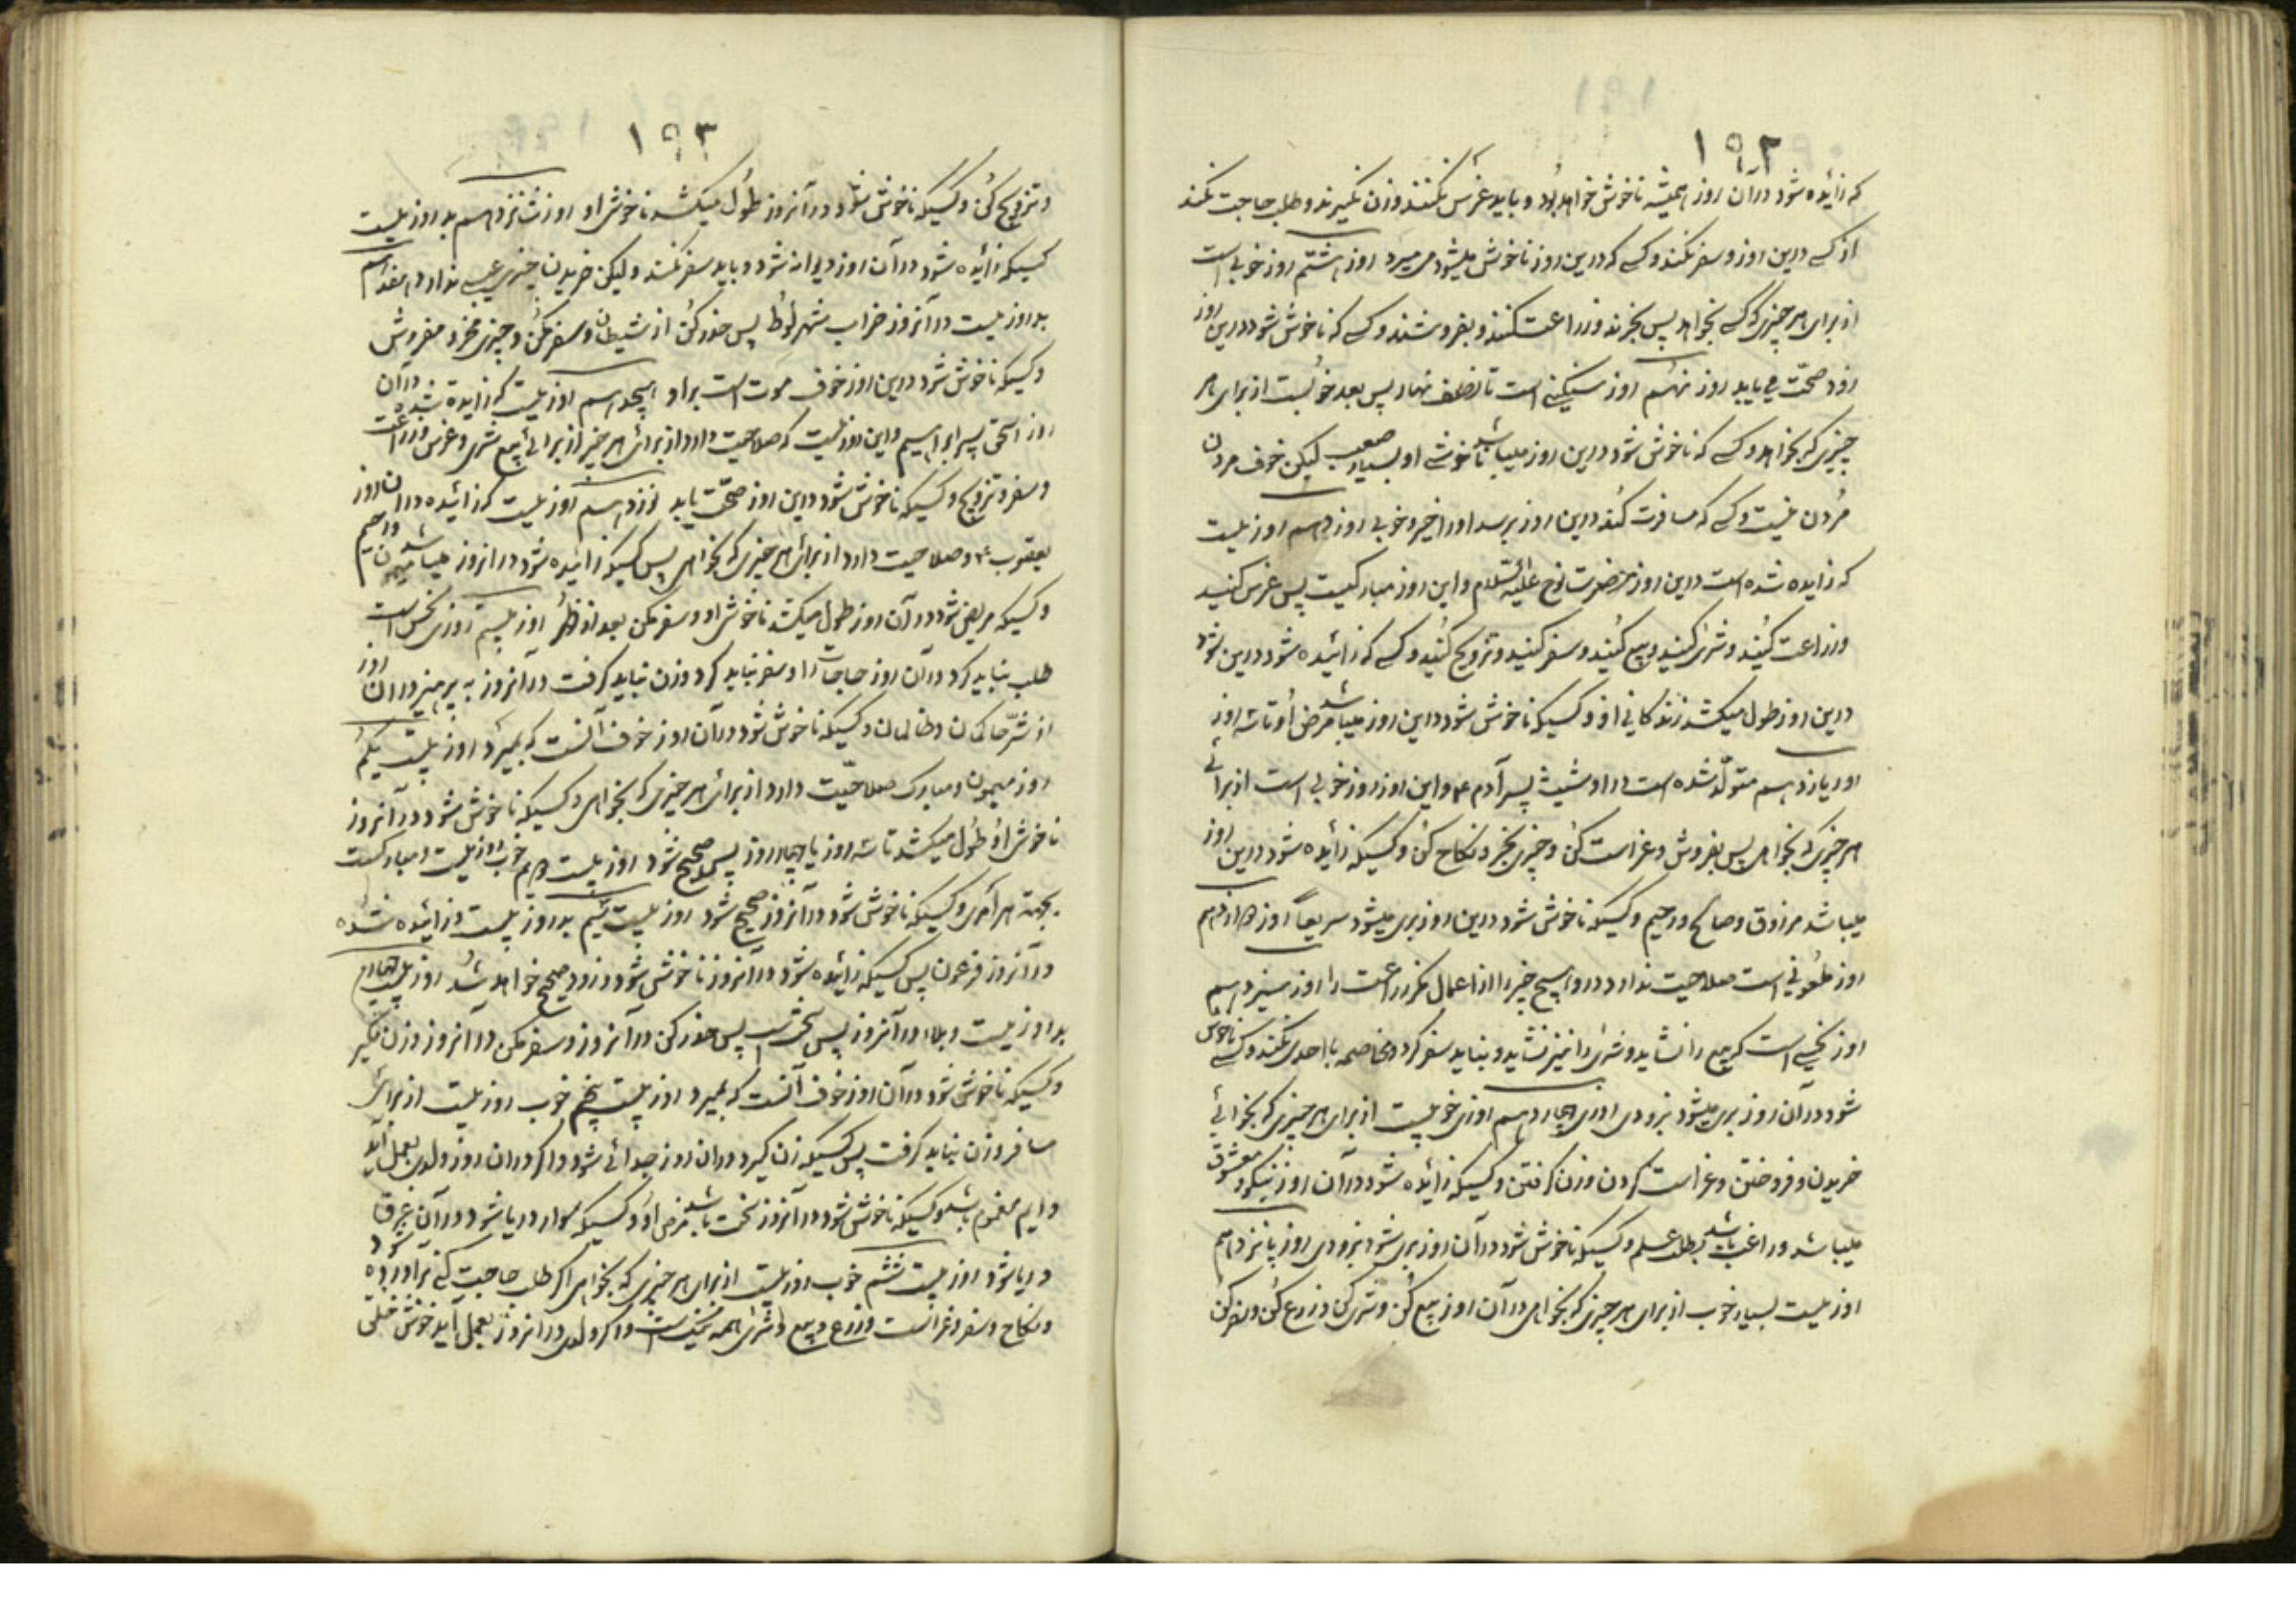 ۱۹۲
که زائیده شود در آن روز همیشه ناخوش خواهد بود و باید غرس نکنند و زن نگیرند و طلب حاجت نکند
از کسے درین روز و سفر نکند و کسے که درین روز ناخوش میشود می میرد روز هشتم روز خوبی است
از برای هر چیزی که کسے بخواهد پس بخرند و زراعت کنند و بفروشند و کسے که ناخوش شود درین روز
زود صحّت می یابد روز نهم روز سنگینے است تا نصف نهار پس بعد خوبست از برای هر
چیزی که بخواهد و کسے که ناخوش شود درین روز میباشد ناخوشے او بسیار صعب لیکن خوف مردن
مُردن نیست و کسے که مسافرت کند درین روز برسد او را خیر و خوبی روز دهم روزیست
که زایده شده است درین روز حضرت نوح علیه السّلام و این روز مبارکیست پس غرس کنید
و زراعت کنید و شری کنید و بیع کنید و سفر کنید و تزویج کنید و کسے که زائیده شود درین شود
درین روز طول میکشد زندگانی او و کسیکه ناخوش شود در این روز میباشد مرض او تا سه روز
روز یازدهم متولّد شده است در او شیث پسر آدم ۴ و این روز روز خوبی است از برائے
هر چیزی که بخواهد پس بفروش و غراست کن و چیزی بخر و نکاح کن و کسیکه زائیده شود درین روز
میباشد مرزوق و صالح و رحیم و کسیکه ناخوش شود درین روز بری میشود سریعاً روز دوازدهم
روز ملعونی است صلاحیت ندارد در او هیچ چیز را از اعمال مگر زراعت را روز سیزدهم
روز نحسے است که بیع را نشاید و شری را نیز نشاید و نباید سفر کرد و مخاصمه با احدی نکند و کسے ناخوش
شود در آن روز بری میشود بزودی روز چهاردهم روزی خوبیست از برای هر چیزی که بخوائے
خریدن و فروختن و غراست کردن و زن گرفتن و کسیکه زائیده شود در آن روز نیکو و معشوق
میباشد و راغب باشد بطلب علم و کسیکه ناخوش شود در آن روز بری شود بزودی روز پانزدهم
روزیست بسیار خوب از برای هر چیزی که بخواهی در آن روز بیع کن و شری کن و زرع کن و سفر کن
۱۹۳
و تزویج کن و کسیکه ناخوش شود در آنروز طول میکشد ناخوشی او روز شانزدهم بد روزیست
کسیکه زائیده شود در آن روز دیوانه شود و باید سفر نکند و لیکن خریدن چیزی عیبے ندارد هفدهم
بد روزیست در آنروز خراب شهر لوط پس حذر کن از شیطان و سفر مکن و چیزی مخر و مفروش
و کسیکه ناخوش شود درین روز خوف موت است بر او هیجدهم روزیست که زایده شده در آن
روز اسحق پسر ابراهیم و این روزیست که صلاحیت دارد از برائ هر چیز از برائے بیع و شری و غرس و زراعت
و سفر و تزویج و کسیکه ناخوش شود در این روز صحّت یابد نوزدهم روزیست که زائیده در آن روز
یعقوب ۴ و صلاحیت دارد از برائ هر چیزی که بخواهی پس کسیکه زائیده شود در آنروز میباشد میمون و رحیم
و کسیکه مریض شود در آن روز طول میکشد ناخوشی او و سفر مکن بعد از ظهر روز بیستم روزی نحس است
طلب نباید کرد در آن روز حاجات را و سفر نباید کرد و زن نباید گرفت در آنروز به پرهیز در آن روز
از شرّ حاکمان و ظالمان و کسیکه ناخوش شود در آن روز خوف آنست که بمیرد روز بیست یکم
روز میمون و مبارک صلاحیّت دارد از برائ هر چیزی که بخواهی و کسیکه ناخوش شود در آنروز
ناخوشی او طول میکشد تا سه روز یا چهار روز پس صحیح شود روز بیست دویم خوب روزیست و مبارکست
بجهة هر امری و کسیکه ناخوش شود در آنروز صحیح شود روز بیست سیم بد روزیست و زائیده شده
در آنروز فرعون پس کسیکه زائیده شود در آنروز ناخوش شود و زود صحیح خواهد شد روز بیست چهارم
بد روزیست و بلا در آنروز پس حذر کن در آنروز و سفر مکن در آنروز و زن مگیر
و کسیکه ناخوش شود در آن روز خوف آنست که بمیرد روز بیست پنجم خوب روزیست از برای
مسافر و زن نباید گرفت پس کسیکه زن گیرد در آن روز جدائے شود و اگر در آن روز ولدی بعمل آید
دایم مغموم باشد و کسیکه ناخوش شود در آنروز سخت باشد مرض او و کسیکه سوار دریا شود در آن غرق
دریا شود روز بیست ششم خوب روزیست از برای هر چیزی که بخواهی اگر طلب حاجت کنے برآورده گردد
و نکاح و سفر و غراست و زرع و بیع و شرای همه نیک است و اگر ولدی در آنروز بعمل آید خوش خلقی